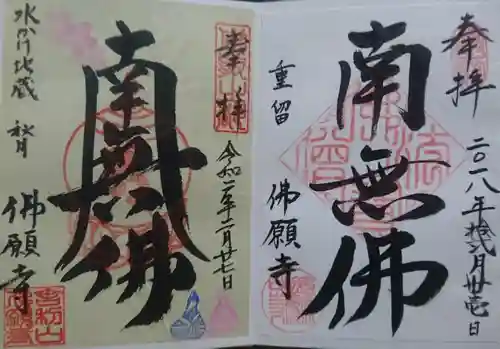 奉拝
二〇一八年拾弐月廿壱日
南無佛
重留
佛願寺
奉拝
令和二年二月廿七日
南無佛
水かけ地蔵
秋月
佛願寺